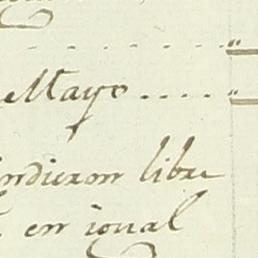 ........"
Mayo ...."
ndieron libre
en igual